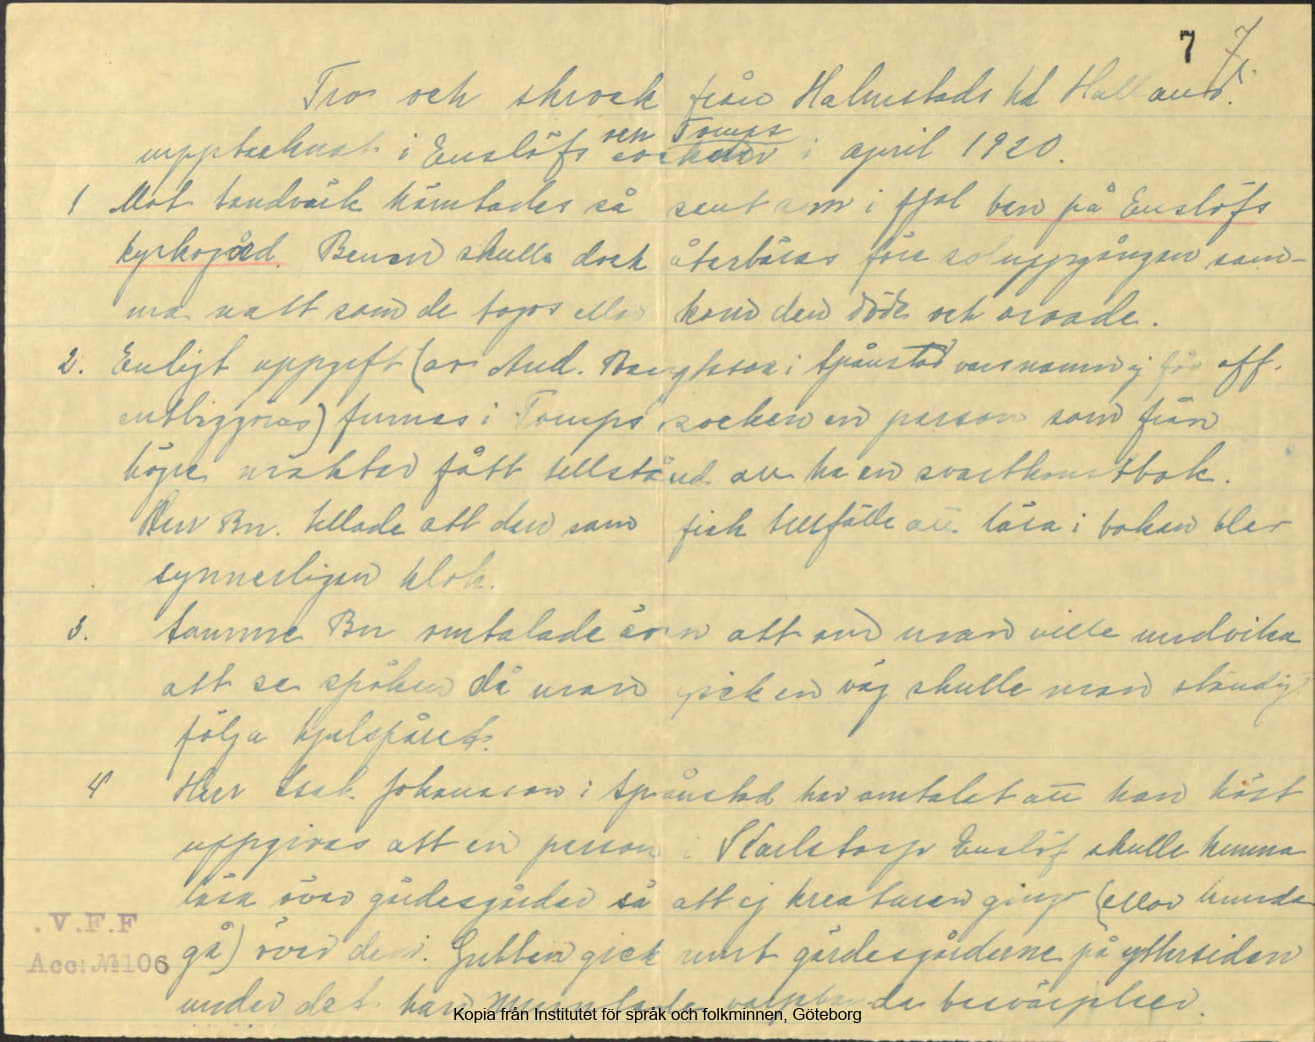 7 7
Tro och skrock från Halmstads hd Halland.
upptecknat i Enslöfs socken i april 1920.
och Tomps
1 Mot tandvärk hämtades så sent som i fjol ben på Enslöfs
kyrkogård. Benen skulle dock återbäras före soluppgången sam-
ma natt som de togos eller kom den döde och oroade.
2. Enligt uppgift (av And. Bengtsson i Spånstad vars namn ej får off-
entliggöras) finnes i Tomps socken en person som från
högre makter fått tillstånd att ha en svartkonstbok.
Herr Bn. tillade att den som fick tillfälle att läsa i boken blev
synnerligen klok.
3. Samme Bn omtalade även att om man ville undvika
att se spöken då man gick en väg skulle man ständigt
följa hjulspåret.
4 Herr Isak Johansson i Spånstad har omtalat att han hört
uppgivas att en person i Karlstorp Enslöf skulle kunna
läsa över gärdesgårdar så att ej kreaturen gingo (eller kunde
gå) över dem. Gubben gick runt gärdesgårderne på yttersidan
under det han mumlade besvärjelser.
. V.F.F
Acc: № 106
Kopia från Institutet för språk och folkminnen, Göteborg